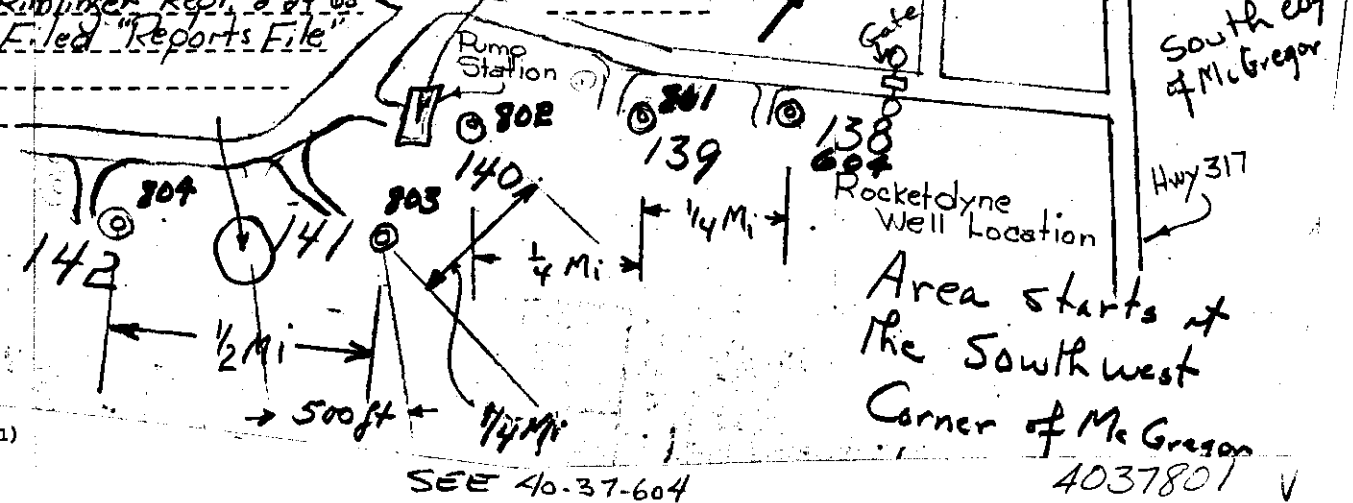 Filed "Reports File"
Pump
Station
Gate
South
of McGregor
802
140
801
139
138
604
Rocketdyne
Well Location
Hwy 317
804
142
141
803
1/4 Mi
1/4 Mi
1/2 Mi
500ft
1/4 Mi
Area starts at
the Sowthwest
Corner of McGregor
1)
SEE 40-37-604
4037801 V